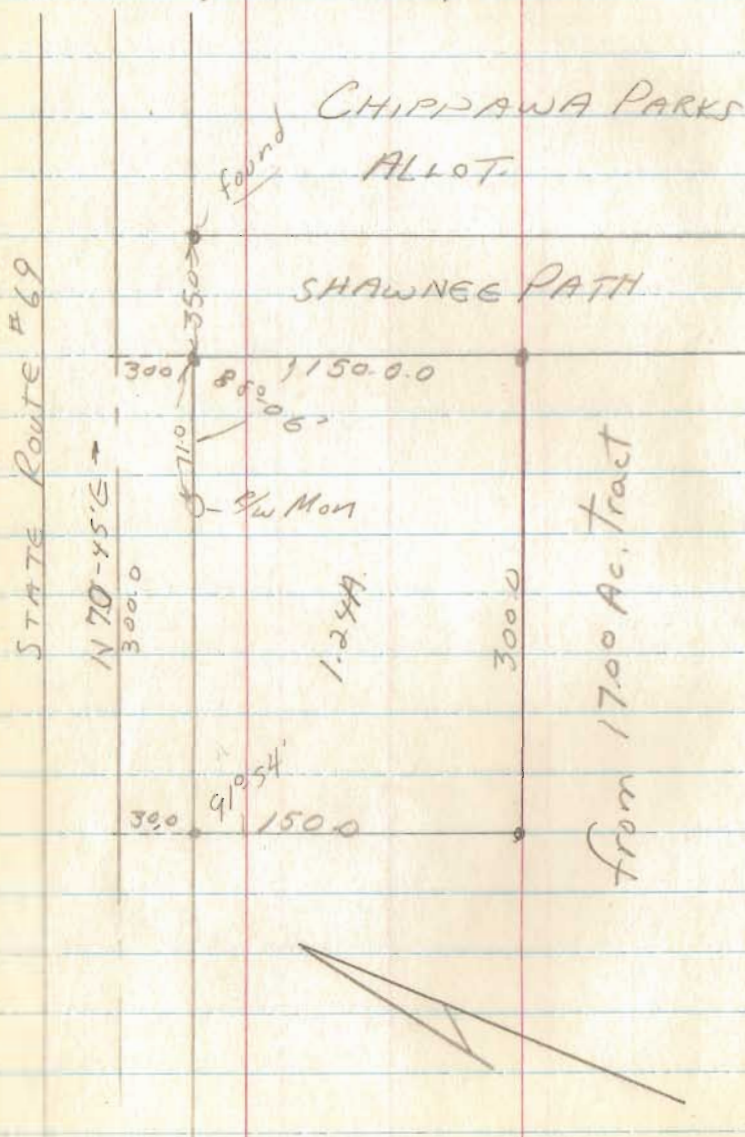 CHIPPAWA PARKS
ALLOT.
found
35.0
SHAWNEE PATH
STATE ROUTE #69
30.0
88° 06'
150.0
71.0
R/W Mon
N 70-45'E
300.0
1.24A.
300.0
from 17.00 Ac. Tract
91° 54'
30.0
150.0